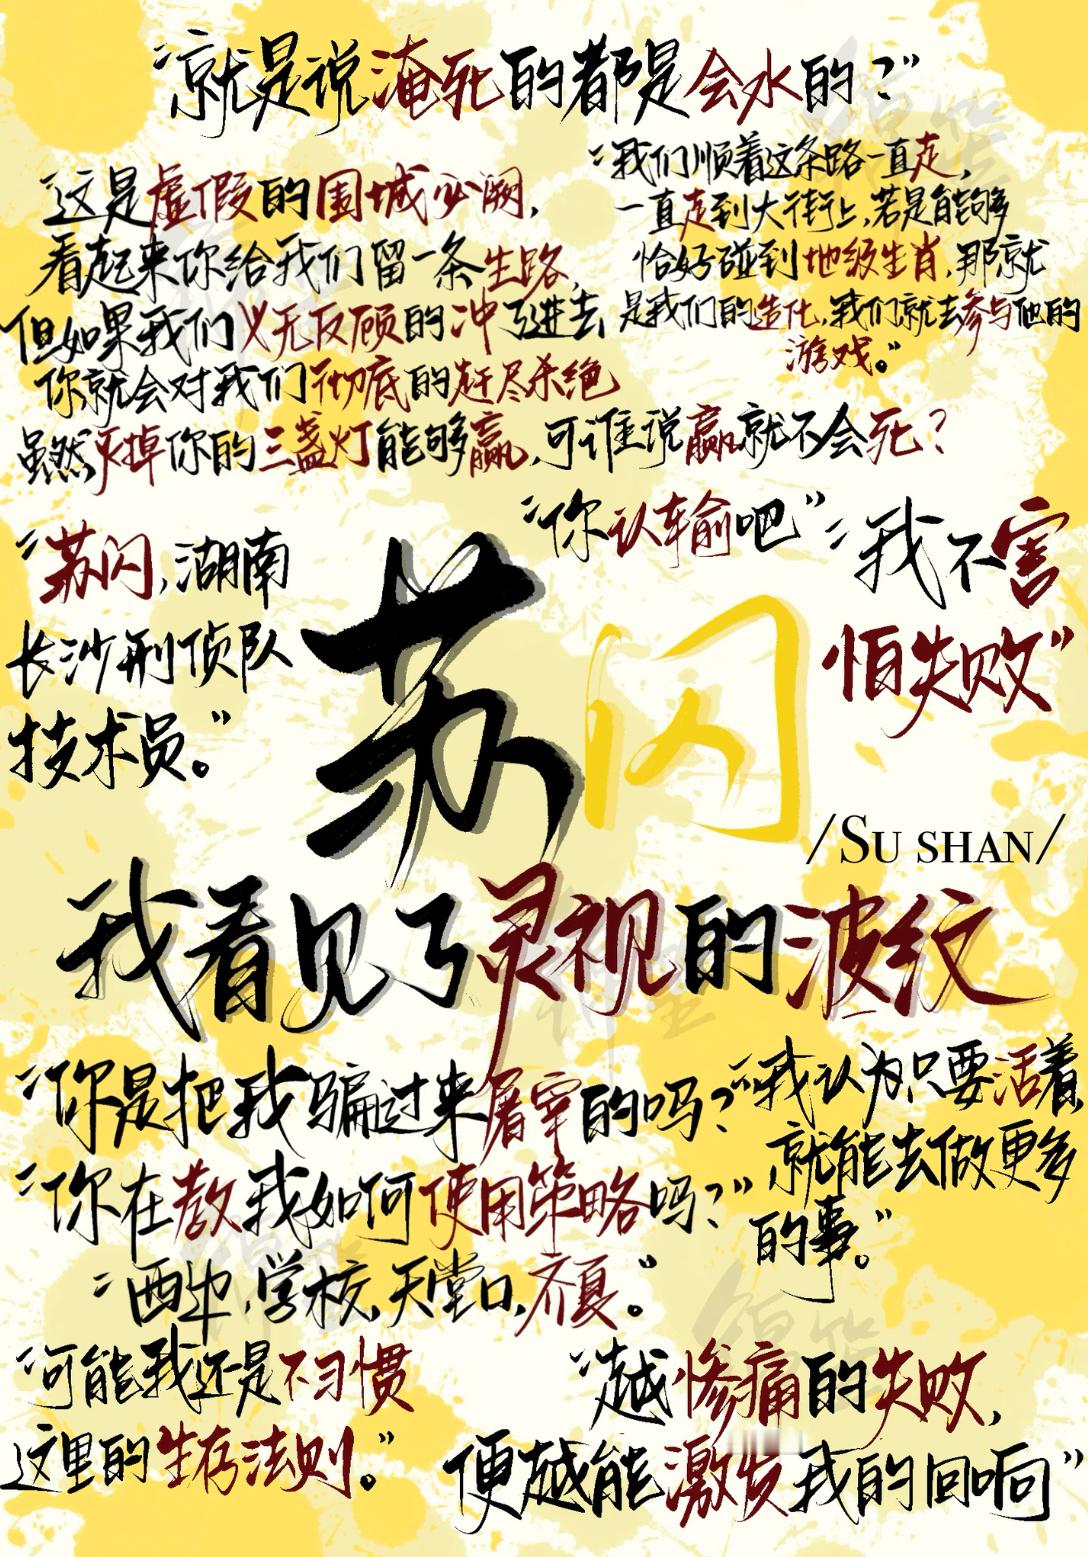 “就是说淹死的都是会水的？”
“这是虚假的围城必阙，
看起来你给我们留一条生路，
但如果我们义无反顾的冲了进去，
你就会对我们彻底的赶尽杀绝
虽然灭掉你的三盏灯能够赢，可谁说赢就不会死？
“我们顺着这条路一直走，
一直走到大街上，若是能够
恰好碰到地级生肖，那就
是我们的造化，我们就去参与他的
游戏。”
“你认输吧”
“我不害
怕失败”
“苏闪，湖南
长沙刑侦队
技术员。”
苏闪
/SU SHAN/
我看见了灵视的波纹
“你是把我骗过来屠宰的吗？”
“你在教我如何使用策略吗？”
“我认为只要活着，
就能去做更多
的事。”
“西边，学校，天堂口，齐夏。”
“可能我还是不习惯
这里的生存法则。”
“越惨痛的失败，
便越能激发我的回响”